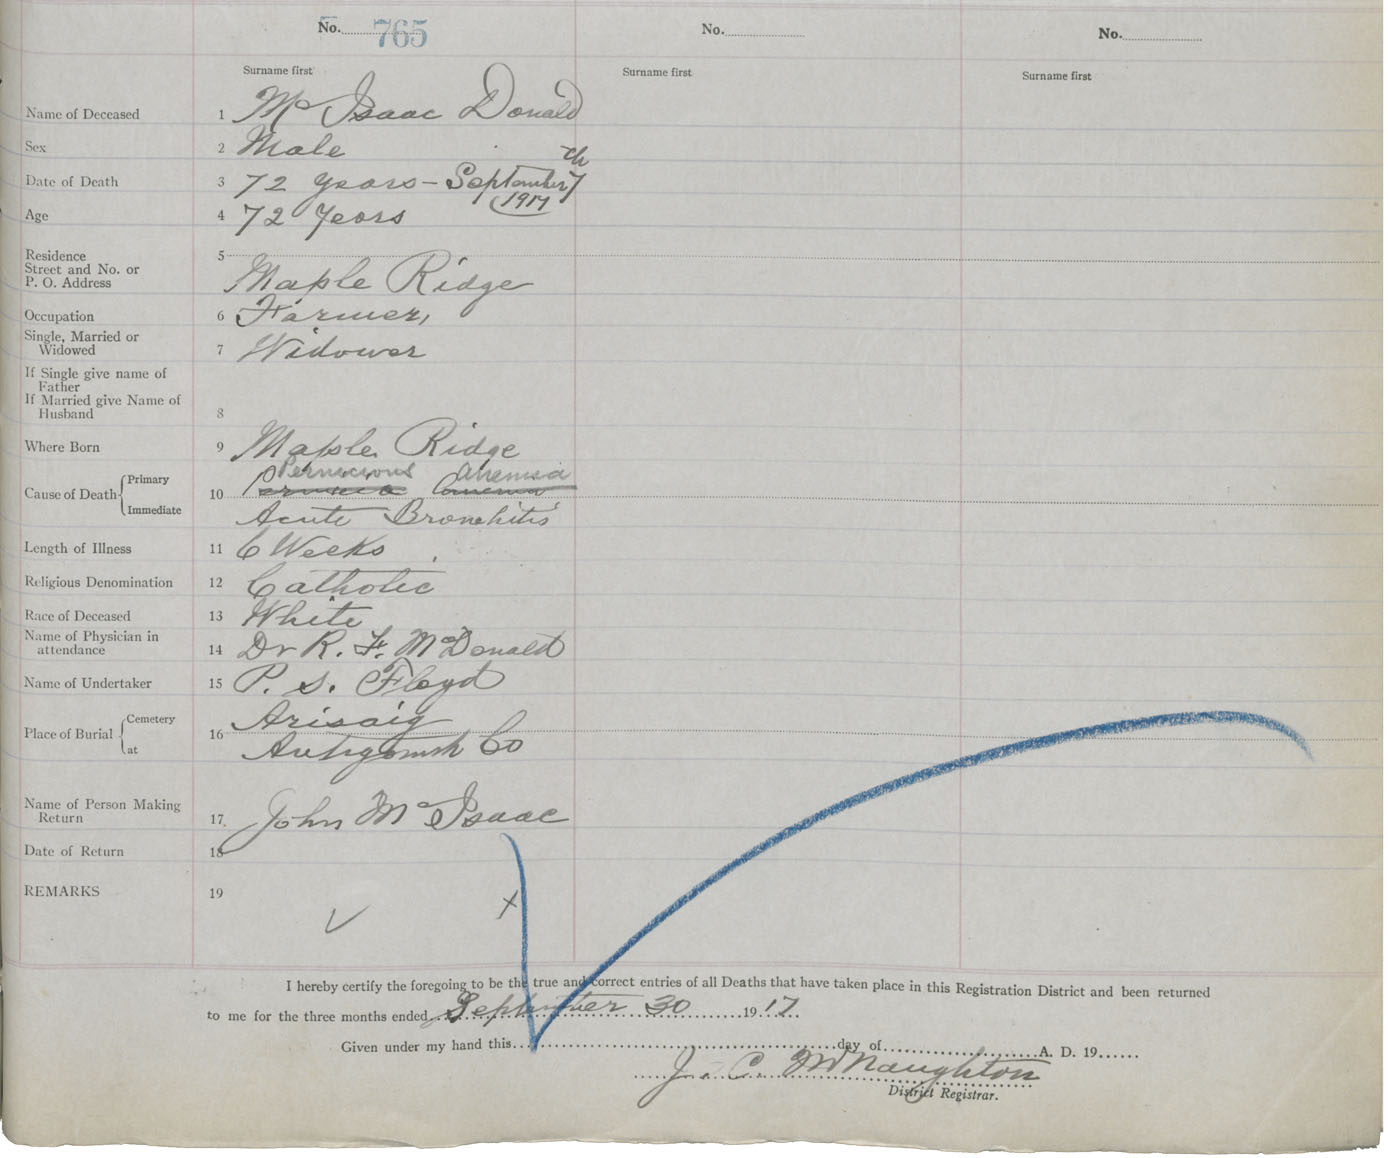 No. 765 No. No.
Surname first Surname first Surname first
Name of Deceased 1 Mc Isaac Donald
Sex 2 Male
Date of Death 3 72 years - September 7th
1917
Age 4 72 Years
Residence 5
Street and No. or
P. O. Address Maple Ridge
Occupation 6 Farmer,
Single, Married or
Widowed 7 Widower
If Single give name of
Father
If Married give Name of
Husband 8
Where Born 9 Maple Ridge
Pernicious Anemia
Cause of Death Primary 10
Immediate Acute Bronchitis
Length of Illness 11 6 Weeks
Religious Denomination 12 Catholic
Race of Deceased 13 White
Name of Physician in
attendance 14 Dr R. F. McDonald
Name of Undertaker 15 P. S. Floyd
Place of Burial Cemetery 16 Arisaig
at Antigonish Co
Name of Person Making
Return 17 John Mc Isaac
Date of Return 18
REMARKS 19
I hereby certify the foregoing to be the true and correct entries of all Deaths that have taken place in this Registration District and been returned
to me for the three months ended September 30 1917
Given under my hand this day of A. D. 19
J. C. McNaughton
District Registrar.